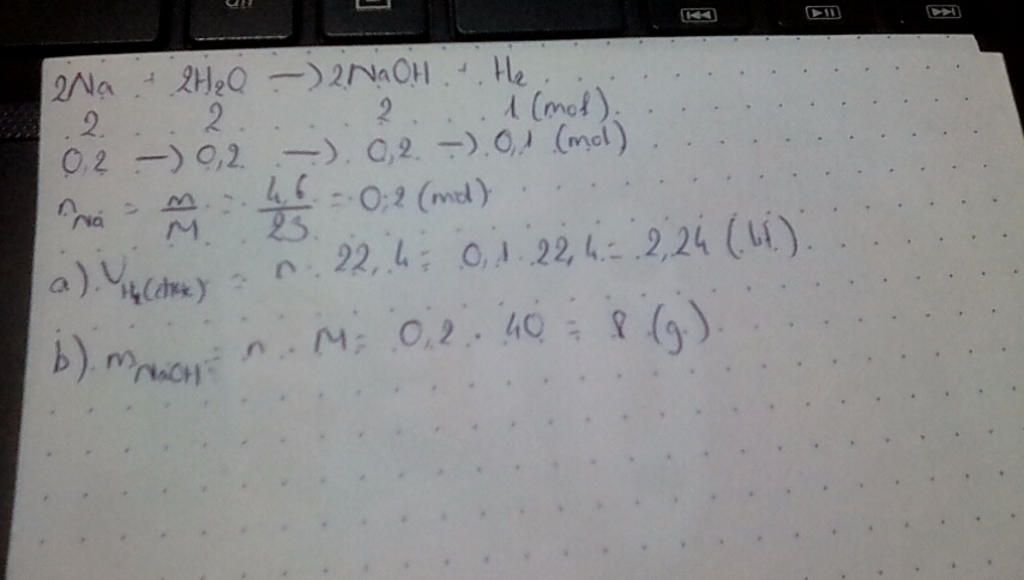 2Na + 2H₂O → 2NaOH + H₂
2 2 2 1 (mol)
0,2 → 0,2 → 0,2 → 0,1 (mol)
nNa = m/M = 4,6/23 = 0,2 (mol)
a) VH₂(đktc) = n . 22,4 = 0,1 . 22,4 = 2,24 (lít)
b) mNaOH = n . M = 0,2 . 40 = 8 (g)